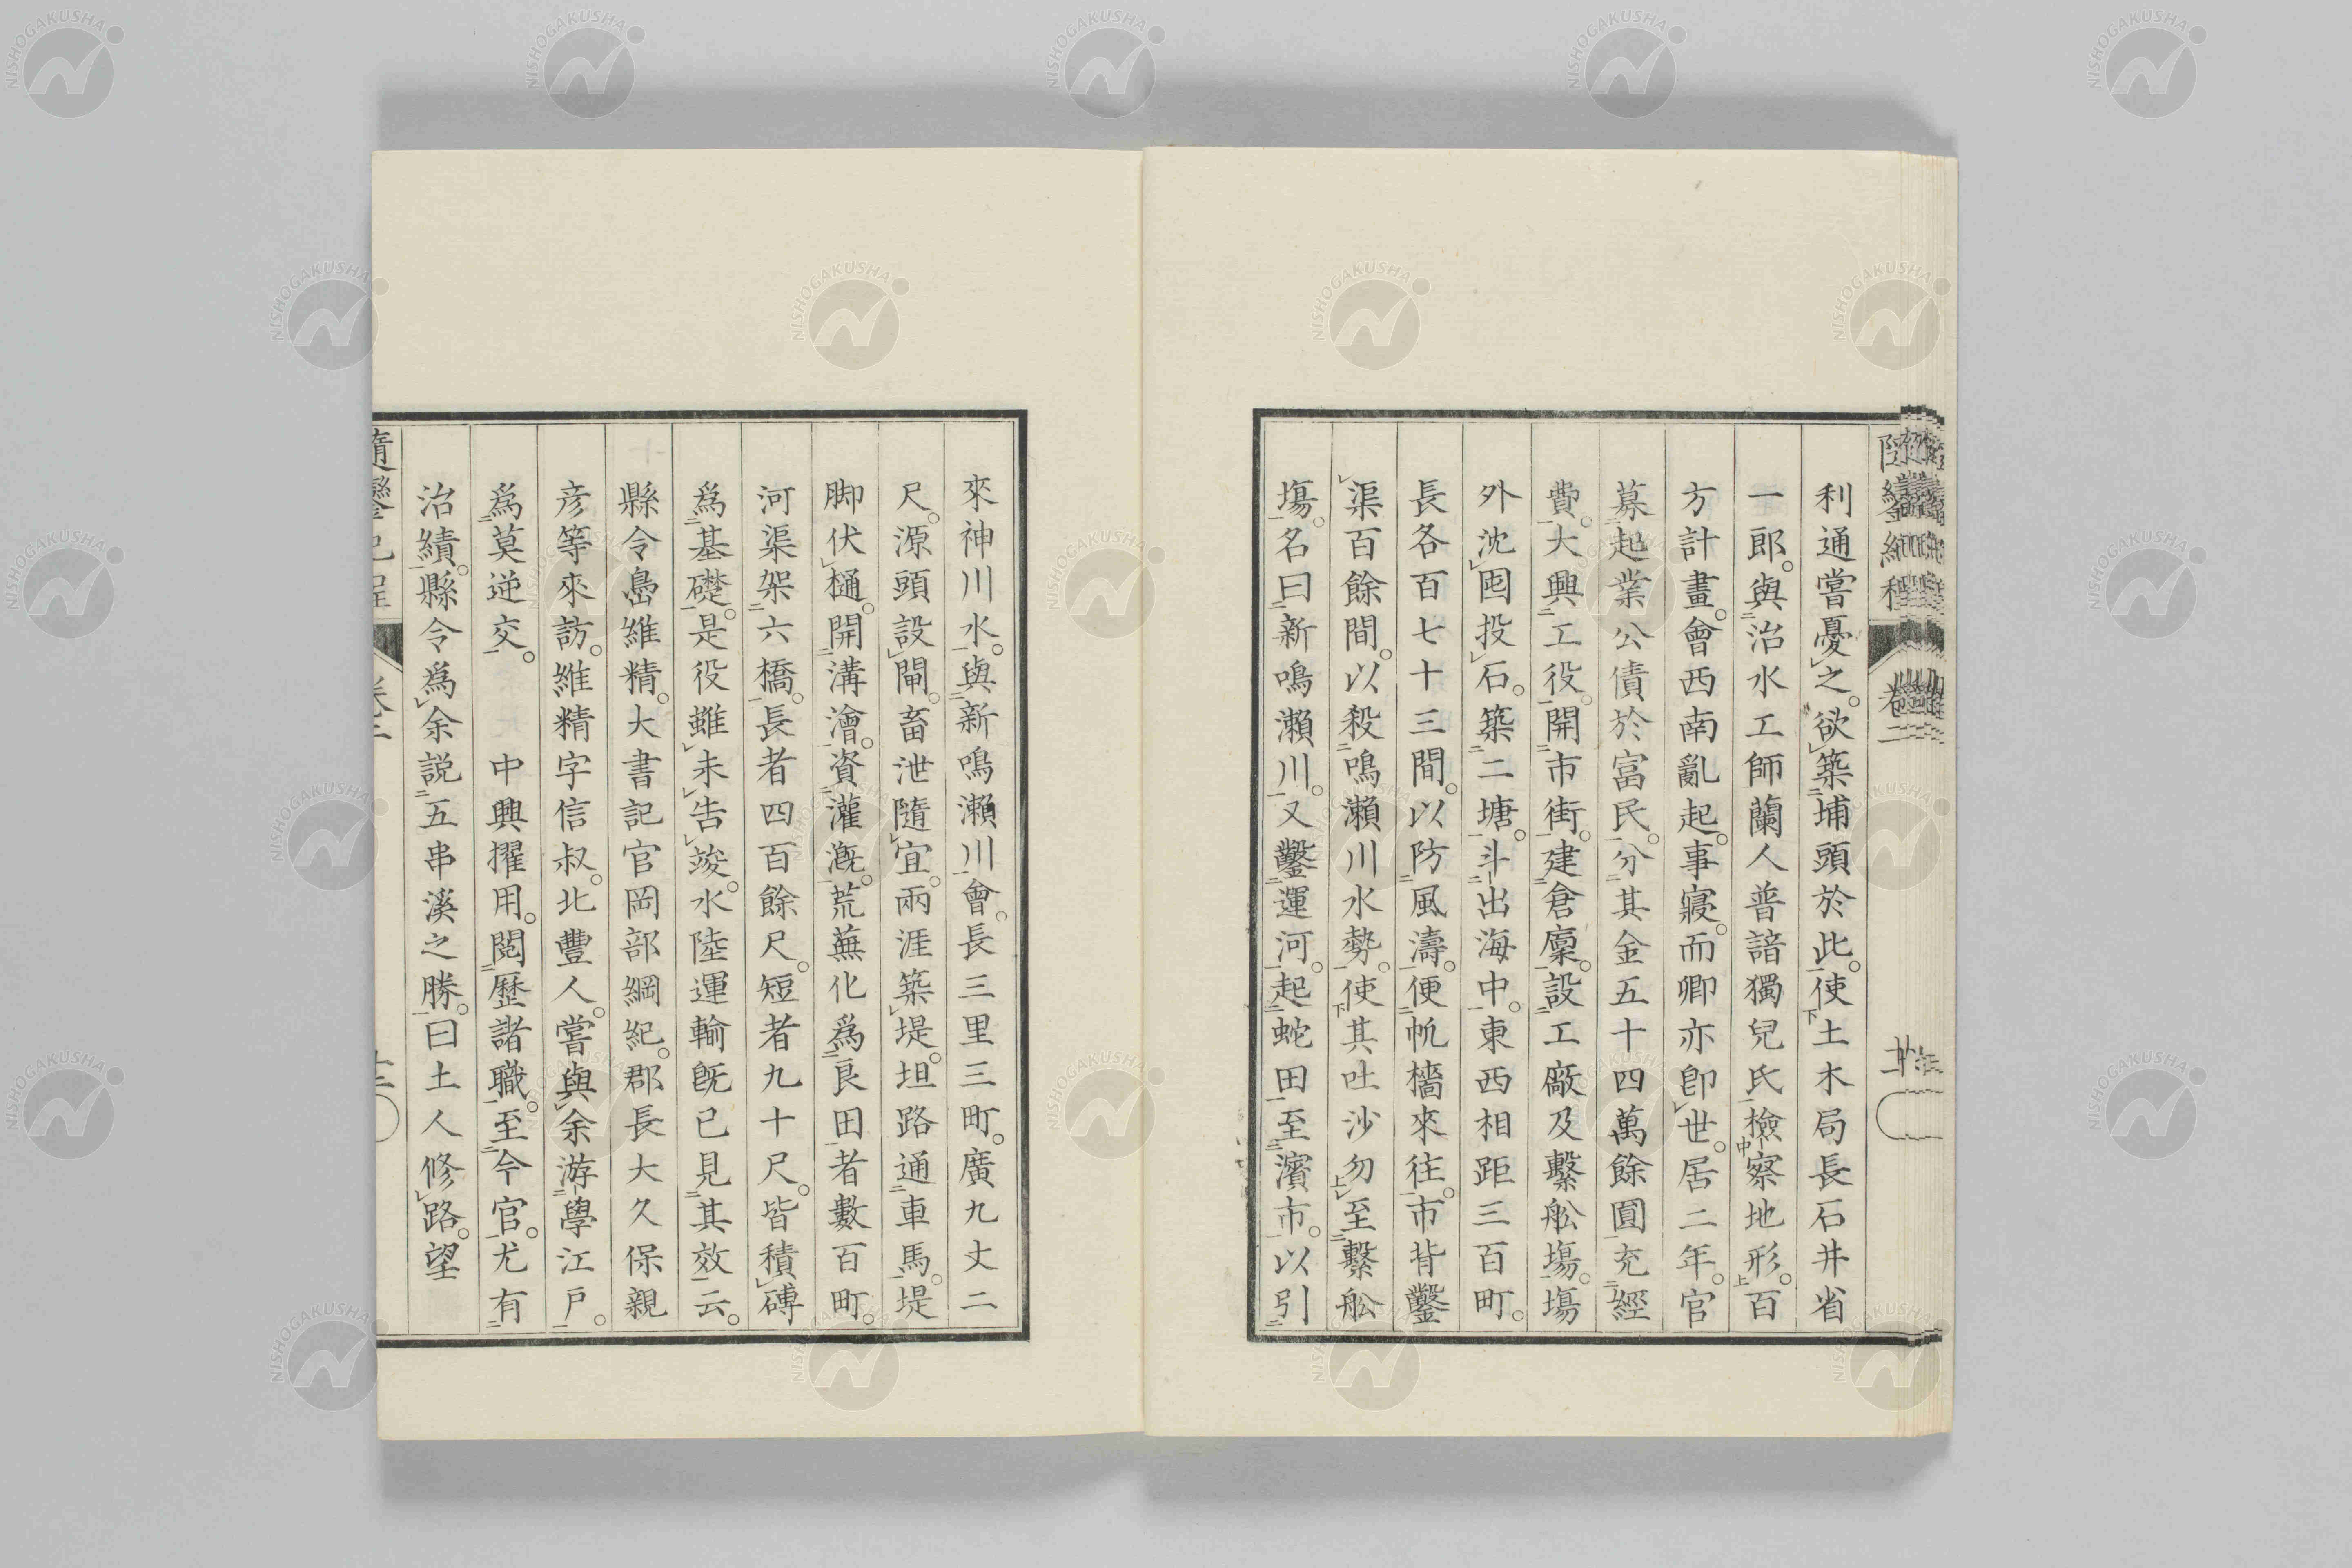 利通嘗憂之。欲築埔頭於此。使土木局長石井省
一郎。與治水工師蘭人普諳獨兒氏檢察地形。百
方計畫。會西南亂起。事寢。而卿亦卽世。居二年。官
募起業公債於富民。分其金五十四萬餘圓充經
費。大興工役。開市街。建倉廩。設工廠及繫舩塲。塲
外沈囤投石。築二塘。斗出海中。東西相距三百町。
長各百七十三間。以防風濤。便帆檣來往。市背鑿
渠百餘間。以殺鳴瀨川水勢。使其吐沙勿至繫舩
塲。名曰新鳴瀨川。又鑿運河。起蛇田至濱市。以引
來神川水。與新鳴瀨川會。長三里三町。廣九丈二
尺。源頭設閘。畜泄隨宜。兩涯築堤。坦路通車馬。堤
脚伏樋。開溝澮。資灌漑。荒蕪化爲良田者數百町。
河渠架六橋。長者四百餘尺。短者九十尺。皆積磚
爲基礎。是役雖未告竣。水陸運輸旣已見其效云。
縣令嶌維精。大書記官岡部綱紀。郡長大久保親
彦等來訪。維精字信叔。北豐人。嘗與余游學江戶。
爲莫逆交。 中興擢用。閱歷諸職。至今官。尤有
治績。縣令爲余説五串溪之勝。曰土人修路。望
隨鑾紀程 卷二
NISHOGAKUSHA